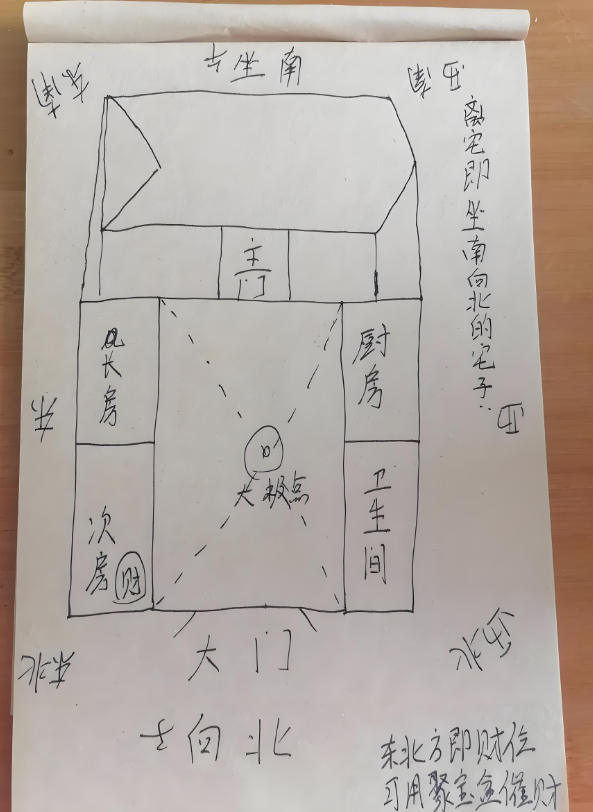 坐南
东南
西南
离宅即坐南向北的宅子.
主门
长房
厨房
东
西
太极点
次房
财
卫生间
大门
东北
西北
向北
东北方即财位
可用聚宝盆催财